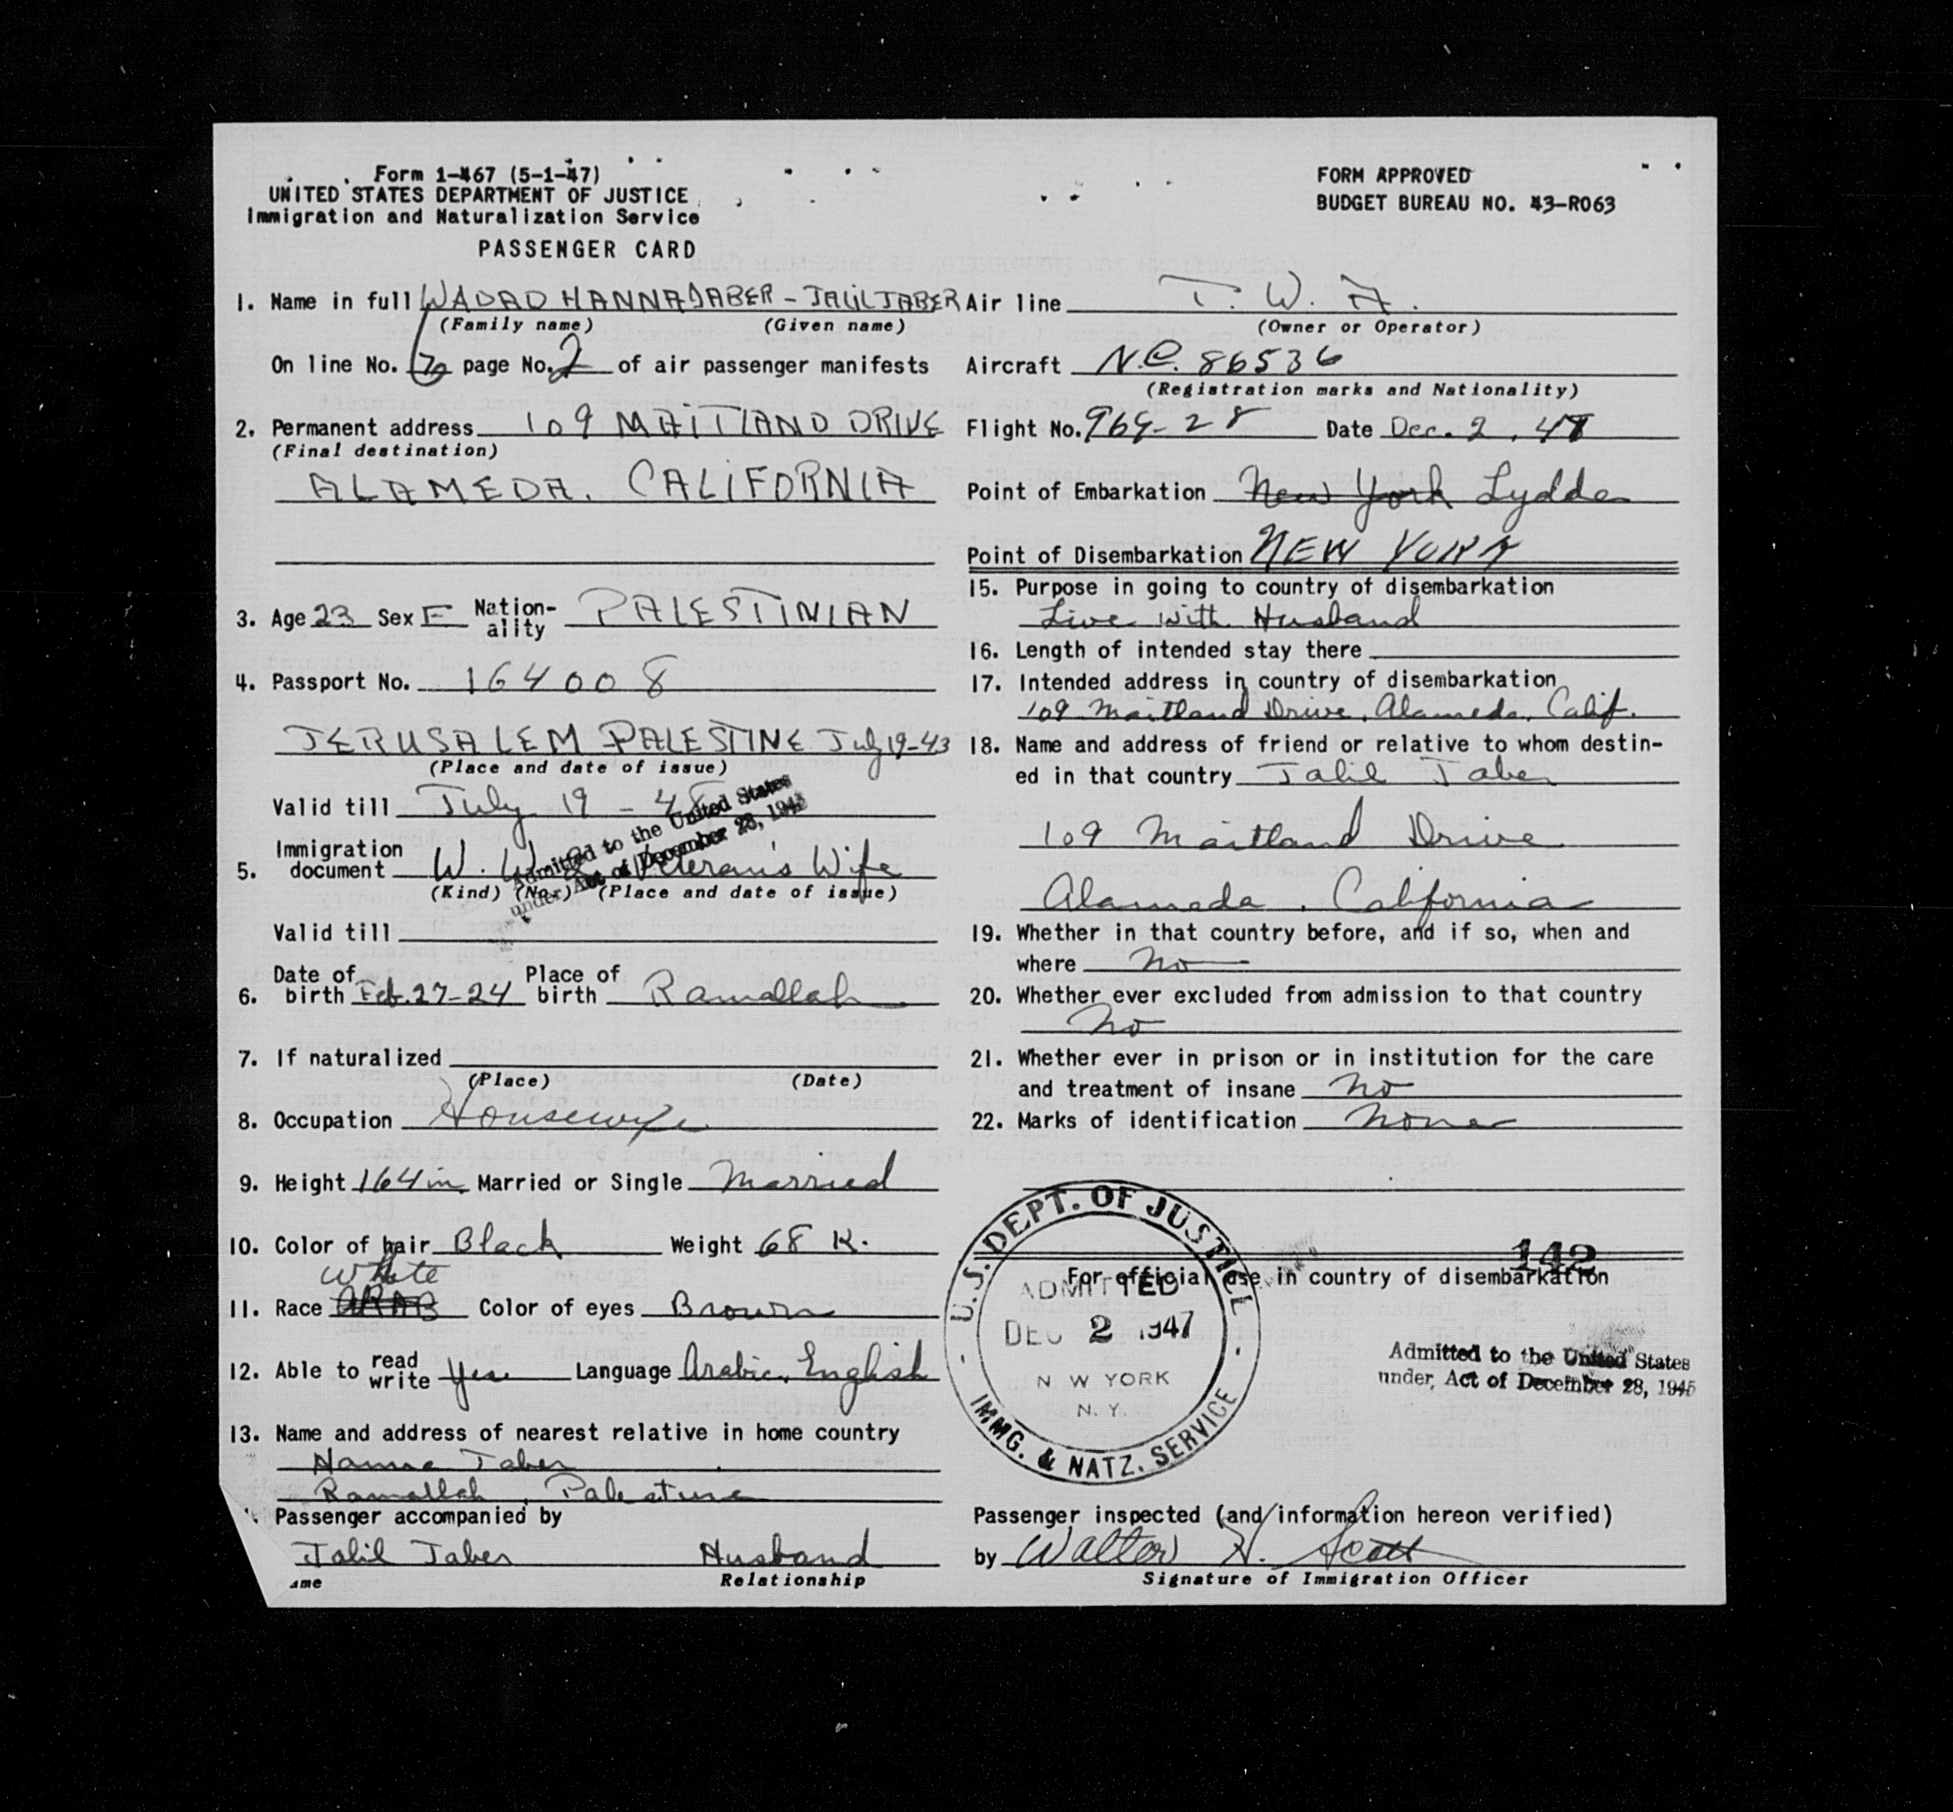 Form 1-467 (5-1-47)
UNITED STATES DEPARTMENT OF JUSTICE
Immigration and Naturalization Service
PASSENGER CARD
FORM APPROVED
BUDGET BUREAU NO. 43-R063
1. Name in full WADAD HANNA JABER - JALIL JABER
(Family name) (Given name)
On line No. page No. 2 of air passenger manifests
2. Permanent address 109 MAITLAND DRIVE
(Final destination)
ALAMEDA. CALIFORNIA
3. Age 23 Sex F Nation-ality PALESTINIAN
4. Passport No. 164008
JERUSALEM PALESTINE July 19-43
(Place and date of issue)
Valid till July 19 - 48
Admitted to the United States
under Act of December 28, 1945
5. Immigration document W. W. 2 Veteran's Wife
(Kind) (No.) (Place and date of issue)
Valid till
6. Date of birth Feb. 27-24 Place of birth Ramallah
7. If naturalized
(Place) (Date)
8. Occupation Housewife
9. Height 164 m Married or Single Married
10. Color of hair Black Weight 68 K.
White
11. Race ARAB Color of eyes Brown
12. Able to read write Yes. Language Arabic, English
13. Name and address of nearest relative in home country
Hanna Jaber
Ramallah, Palestine
Passenger accompanied by
Jalil Jaber Husband
ame Relationship
Air line T. W. A.
(Owner or Operator)
Aircraft N.C. 86536
(Registration marks and Nationality)
Flight No. 969-28 Date Dec. 2, 47
Point of Embarkation New York Lydda
Point of Disembarkation NEW YORK
15. Purpose in going to country of disembarkation
Live with Husband
16. Length of intended stay there
17. Intended address in country of disembarkation
109 Maitland Drive, Alameda, Calif.
18. Name and address of friend or relative to whom destin-
ed in that country Jalil Jaber
109 Maitland Drive
Alameda, California
19. Whether in that country before, and if so, when and
where No
20. Whether ever excluded from admission to that country
No
21. Whether ever in prison or in institution for the care
and treatment of insane No
22. Marks of identification None
142
For official use in country of disembarkation
U.S. DEPT. OF JUSTICE
ADMITTED
DEC 2 1947
N W YORK
N. Y.
IMMG. & NATZ. SERVICE
Admitted to the United States
under Act of December 28, 1945
Passenger inspected (and information hereon verified)
by Walter H. Scott
Signature of Immigration Officer